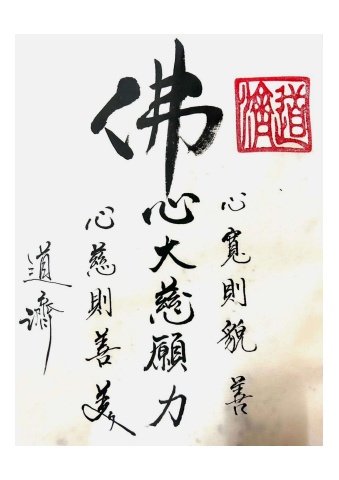 道濟
心寬則貌善
佛心大慈願力
心慈則善美
道濟